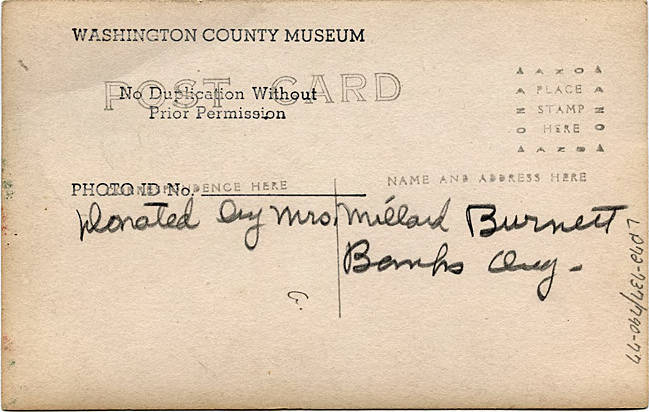 WASHINGTON COUNTY MUSEUM
POST CARD
No Duplication Without
Prior Permission
AZO
PLACE
STAMP
HERE
AZO
PHOTO ID No.
CORRESPONDENCE HERE
NAME AND ADDRESS HERE
Donated by Mrs. Millard Burnett
Banks Org -